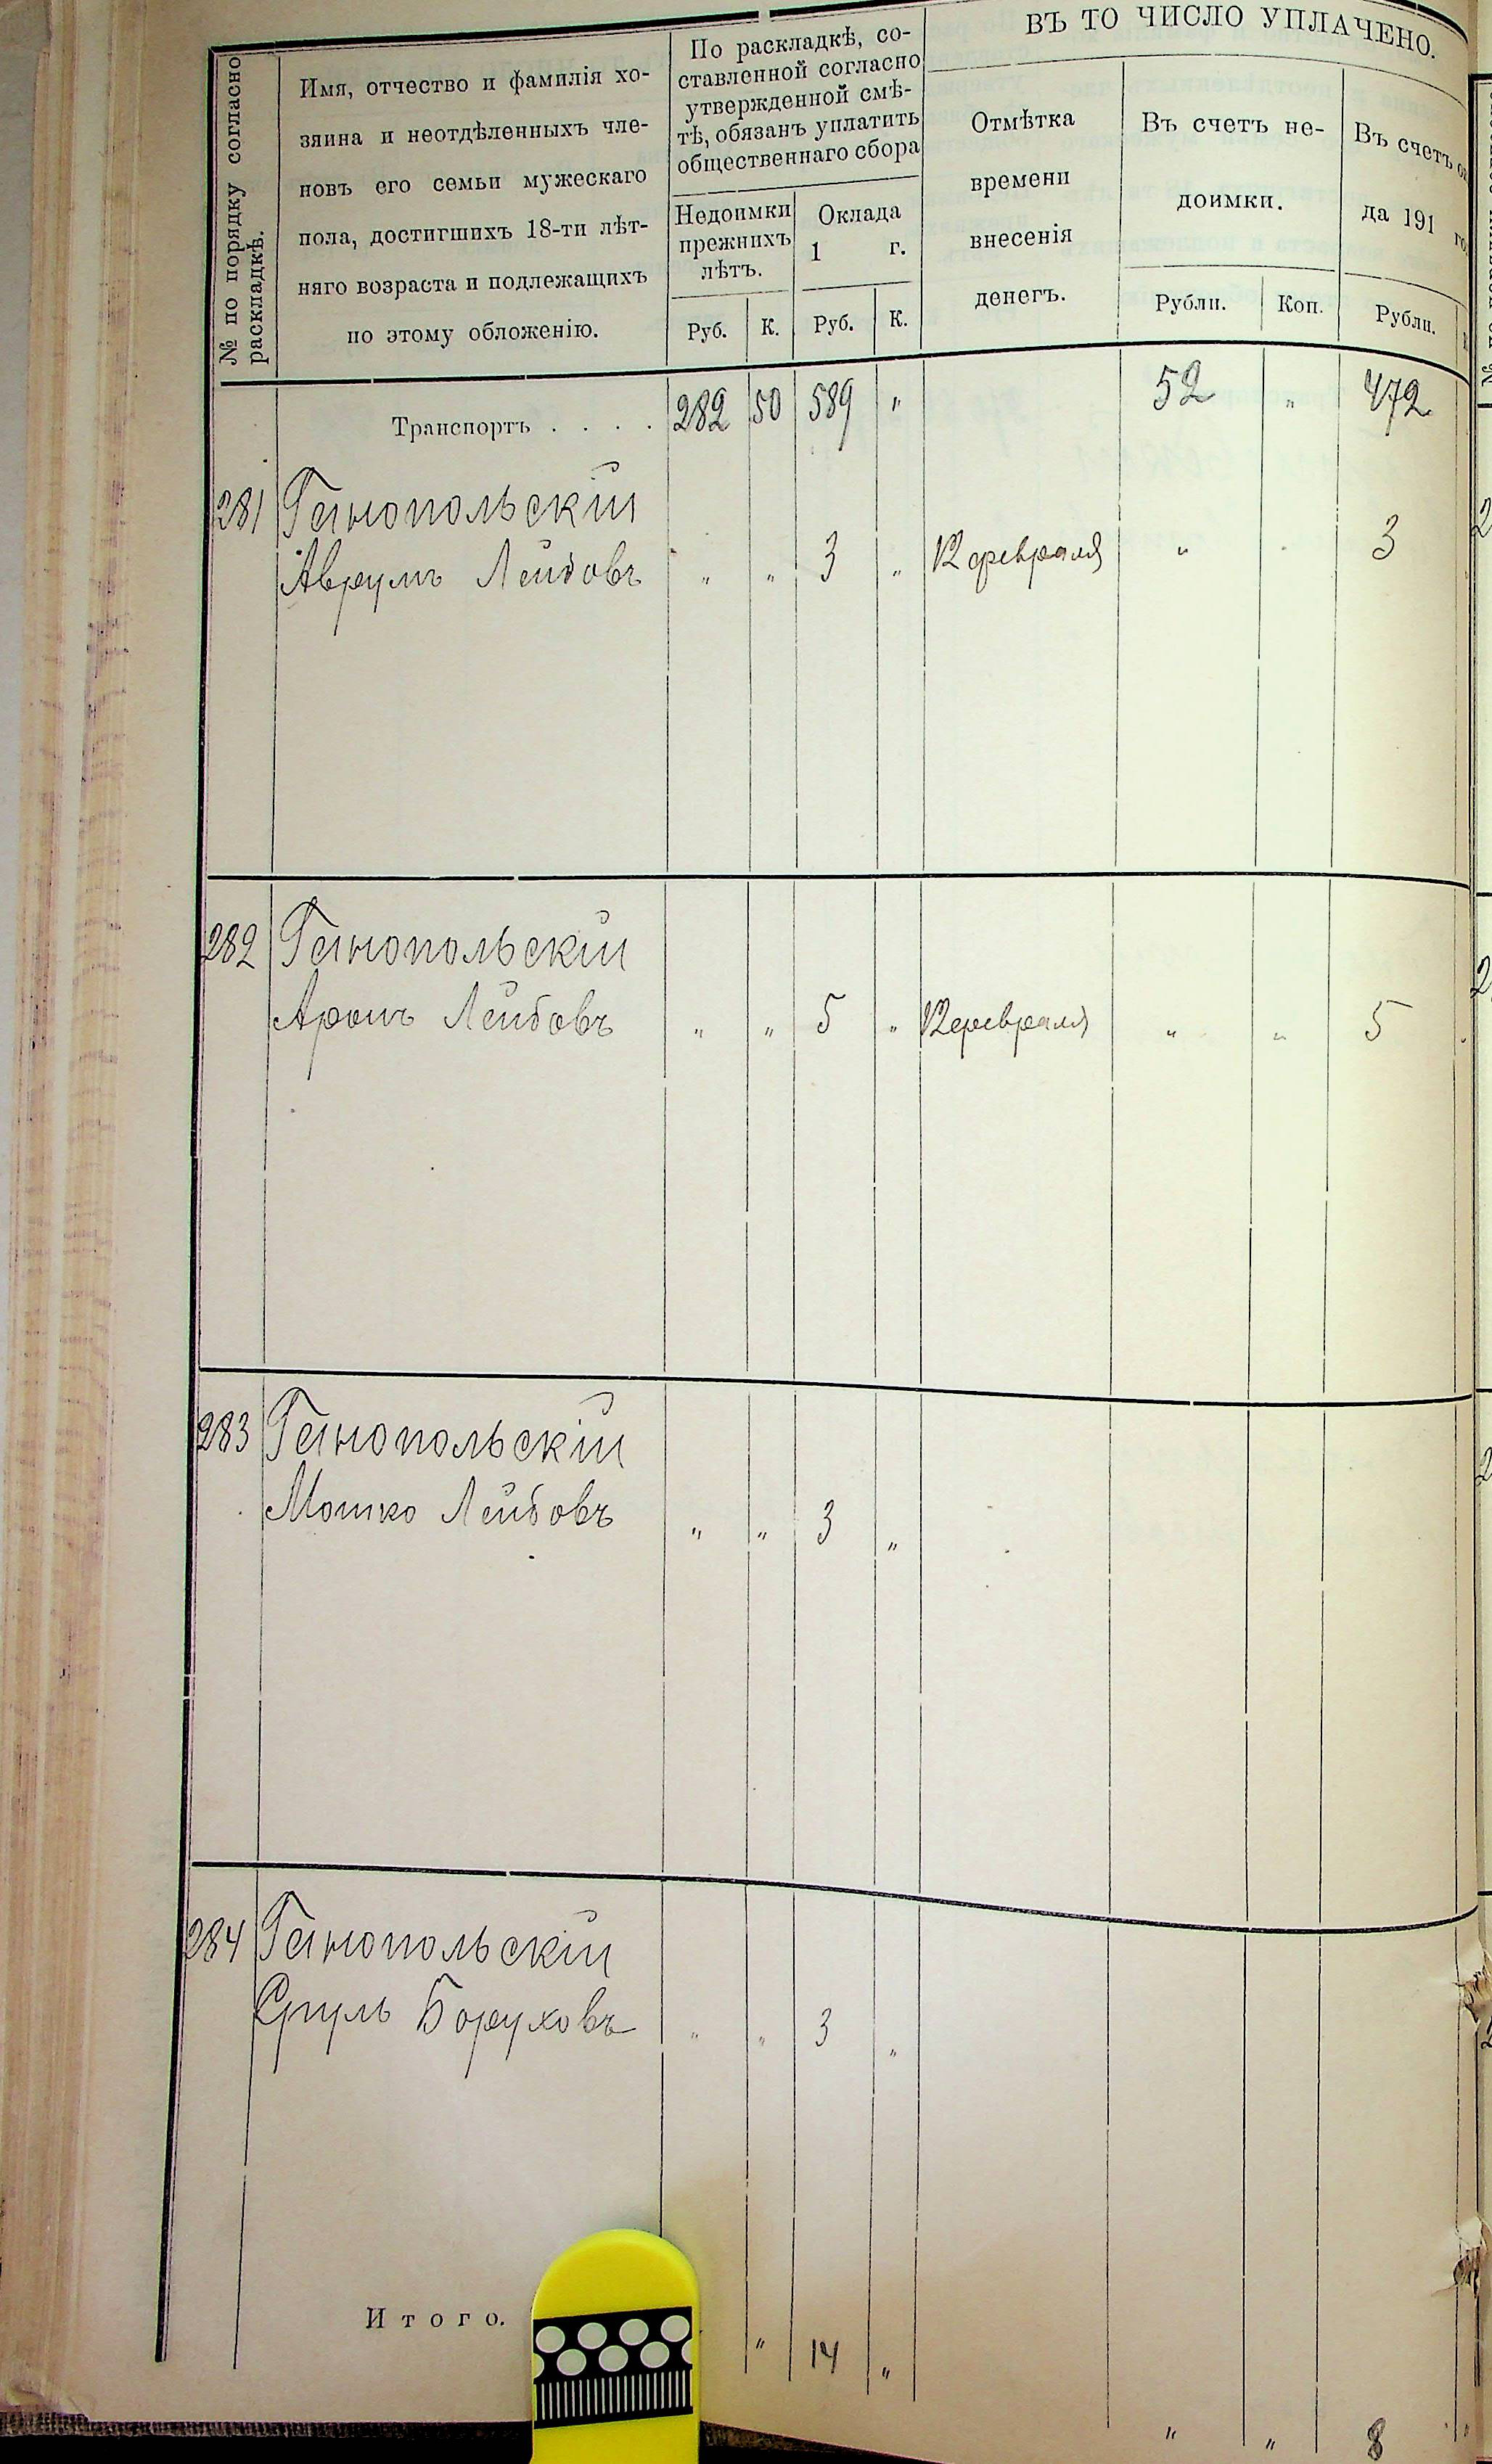 № по порядку согласно
раскладкѣ.
Имя, отчество и фамилія хо-
зяина и неотдѣленныхъ чле-
новъ его семьи мужескаго
пола, достигшихъ 18-ти лѣт-
няго возраста и подлежащихъ
по этому обложенію.
По раскладкѣ, со-
ставленной согласно
утвержденной смѣ-
тѣ, обязанъ уплатить
общественнаго сбора
Недоимки
прежнихъ
лѣтъ.
Руб. К.
Оклада
1 г.
Руб. К.
ВЪ ТО ЧИСЛО УПЛАЧЕНО.
Отмѣтка
времени
внесенія
денегъ.
Въ счетъ не-
доимки.
Рубли. Коп.
Въ счетъ ок
да 191 го
Рубли.
Транспортъ . . . . 282 50 589 " 52 " 472
281 Гайнопольскій
Аврумъ Лейбовъ " " 3 " 12 февраля " " 3
282 Гайнопольскій
Аронъ Лейбовъ " " 5 " 12 февраля " " 5
283 Гайнопольскій
Мошко Лейбовъ " " 3 "
284 Гайнопольскій
Сруль Боруховъ " " 3 "
Итого. " 14 " " " 8